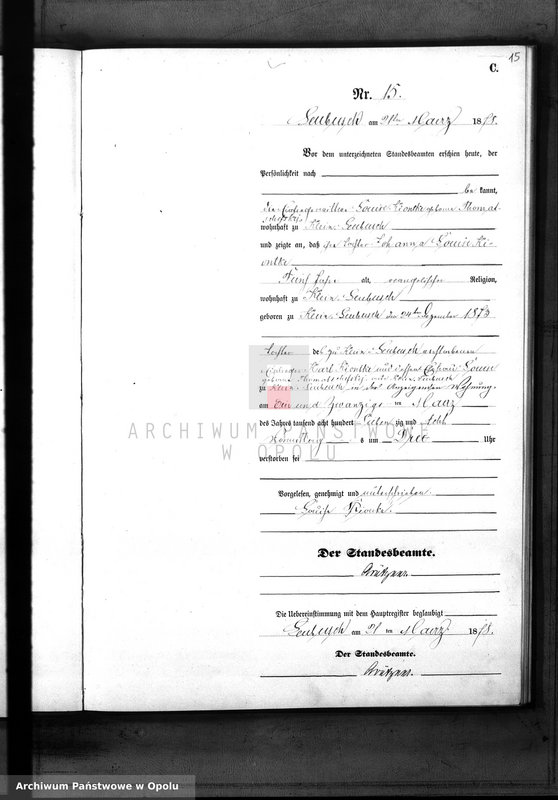 15
C.
Nr. 15.
Leubusch am 21ten März 1878.
Vor dem unterzeichneten Standesbeamten erschien heute, der
Persönlichkeit nach
be kannt,
die Louise Kiontke geborne Thomat-
wohnhaft zu Klein Leubusch
und zeigte an, daß ihre Tochter Johanna Louise Ki-
ontke
Fünf Jahre alt, evangelischer Religion,
wohnhaft zu Klein-Leubusch
geboren zu Klein-Leubusch den 24ten Dezember 1873
Tochter des zu Klein-Leubusch verstorbenen
Karl Kiontke und dessen Louise
geborne
zu Klein Leubusch in der Wohnung
am Ein und Zwanzigs ten März
des Jahres tausend acht hundert Sieben zig und Acht
Vormittag s um Drei Uhr
verstorben sei
Vorgelesen, genehmigt und unterschrieben
Louise Kiontke
Der Standesbeamte.
Die Uebereinstimmung mit dem Hauptregister beglaubigt
Leubusch am 21 ten März 1878.
Der Standesbeamte.
ARCHIWUM PAŃSTWOWE
W OPOLU
Archiwum Państwowe w Opolu